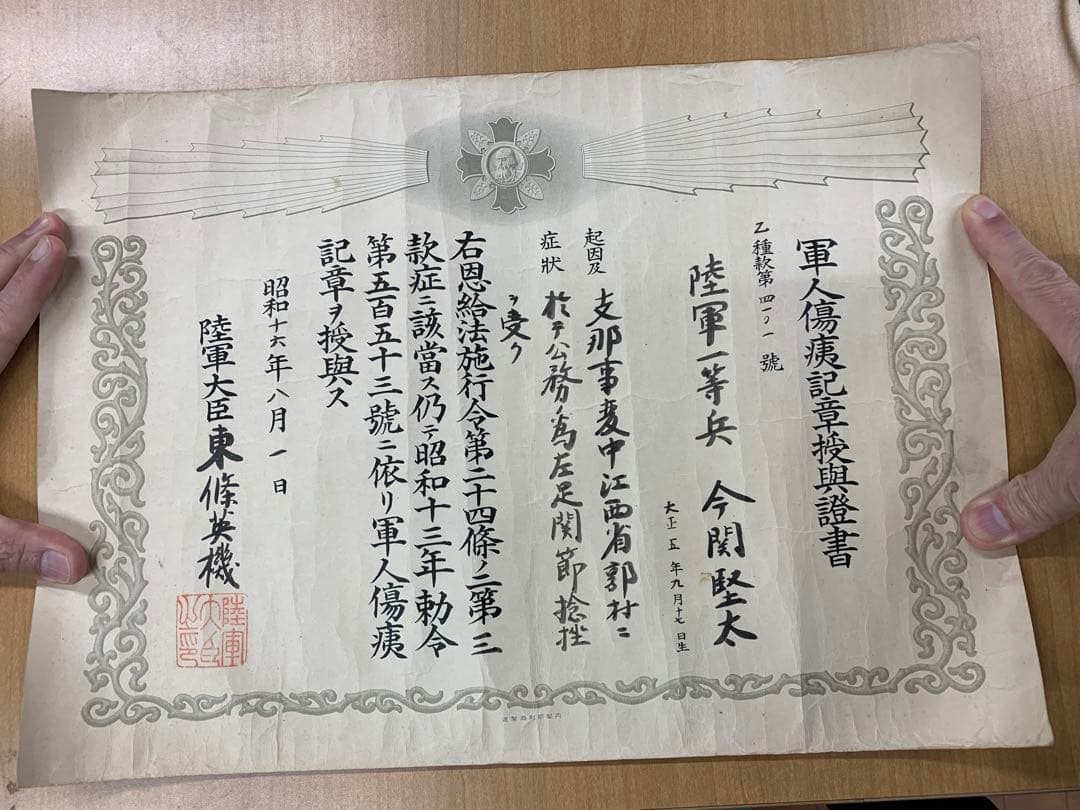 軍人傷痍記章授與證書
乙種款第四一〇一號
陸軍一等兵 今関堅太
大正五年九月十七日生
起因及
症狀
支那事変中江西省郭村ニ
於テ公務ノ為左足関節捻挫
ヲ受ク
右恩給法施行令第二十四條ノ二第三
款症ニ該當ス仍テ昭和十三年勅令
第五百五十三號ニ依リ軍人傷痍
記章ヲ授與ス
昭和十六年八月一日
陸軍大臣東條英機
陸軍
大臣
之印
内閣印刷局製造